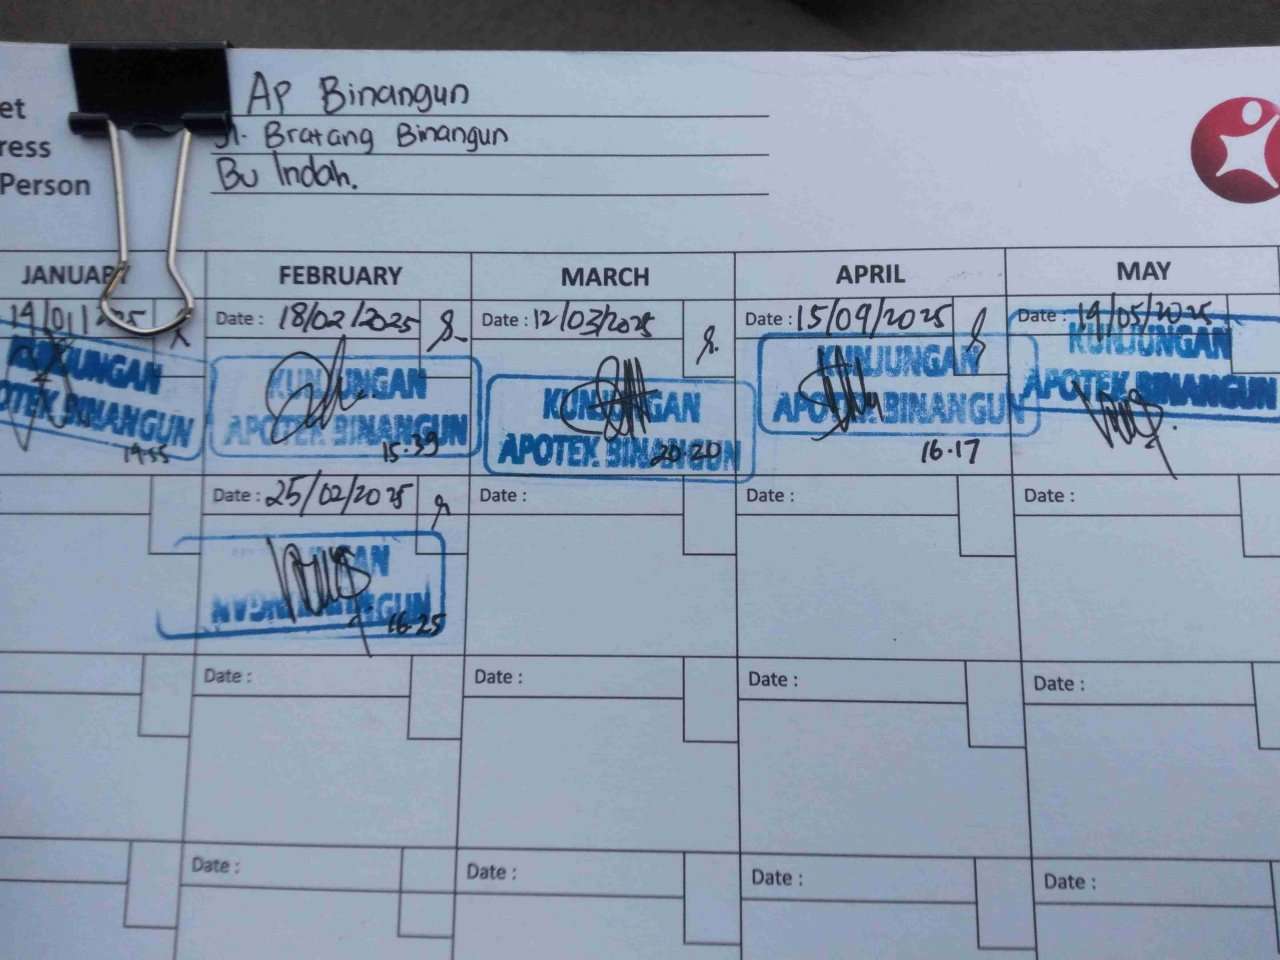 et
Ap Binangun
ress
Jl. Bratang Binangun
Person
Bu Indah.
JANUARY
FEBRUARY
MARCH
APRIL
MAY
Date : 18/02/2025
Date : 12/03/2025
Date : 15/04/2025
Date : 19/05/2025
KUNJUNGAN
APOTEK BINANGUN
KUNJUNGAN
APOTEK BINANGUN
15.39
KUNJUNGAN
APOTEK BINANGUN
20.20
KUNJUNGAN
APOTEK BINANGUN
16.17
KUNJUNGAN
APOTEK BINANGUN
Date : 25/02/2025
Date :
Date :
Date :
16.25
Date :
Date :
Date :
Date :
Date :
Date :
Date :
Date :